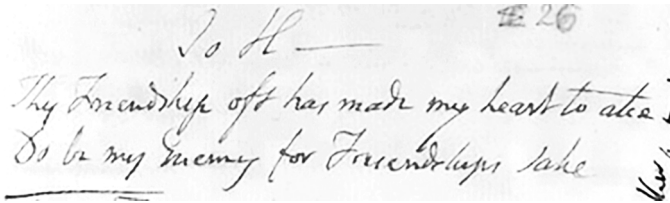 E 26
To H——
Thy Friendship oft has made my heart to ake
Do be my Enemy for Friendships sake